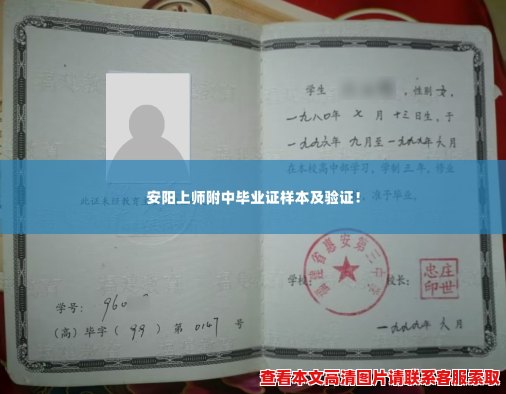 学生 ，性别 女，
一九八〇年 七 月 十三日生，于
一九九六年 九月至一九九九年六月
在本校高中部学习，学制 三 年，修业
安阳上师附中毕业证样本及验证！
此证未经教育
，准予毕业。
福建省惠安第三中学
学校：
校长：
庄世忠印
学号： 960
（高）毕字（ 99 ）第 0147 号
一九九九年 六 月
查看本文高清图片请联系客服索取